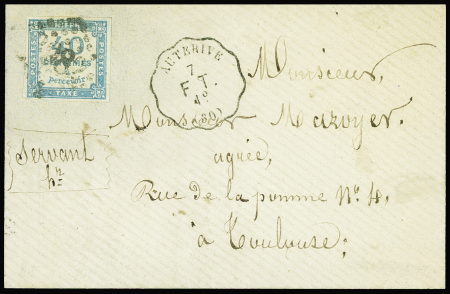 POSTES
40
POSTES
CENTIMES
à percevoir
TAXE
AUTERIVE
7
F. T.
Monsieur,
Monsieur Mazoyer.
Servant
agréé,
Rue de la pomme No. 4,
à Toulouse;